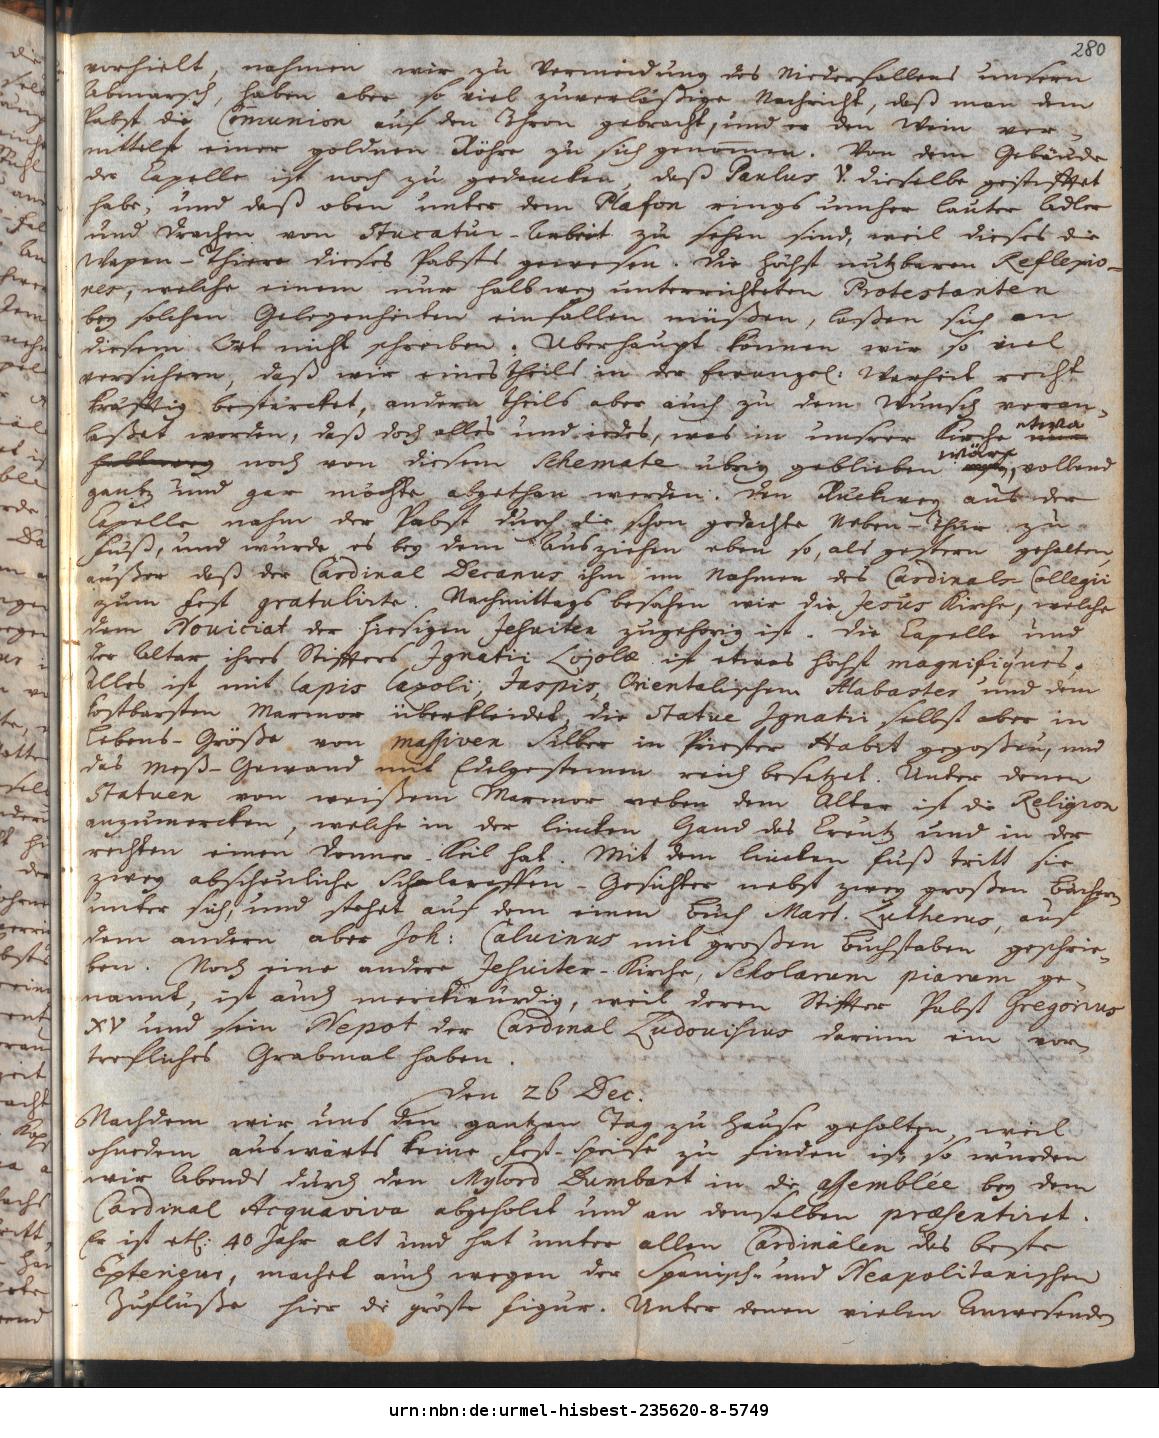 280
vorhielt, nahmen wir zu Vermeidung des Niederfallens unsern
Abmarsch, haben aber so viel zuverläßige Nachricht, daß man dem
Pabst die Communion auf den Thron gebracht, und er den Wein ver-
mittelst einer goldnen Röhre zu sich genommen. Von dem Gebäude
der Capelle ist noch zu gedencken, daß Paulus V. dieselbe gestifftet
habe; und daß oben unter dem Plafon rings umher lauter Adler
und Drachen von Stucatur-Arbeit zu sehen sind, weil dieses die
Wapen-Thiere dieses Pabsts gewesen. Die höchst nutzbaren Reflexio-
nes, welche einem nur halbweg unterrichteten Protestanten
bey solchen Gelegenheiten einfallen müßen, laßen sich an
diesem Ort nicht schreiben. Uberhaupt können wir so viel
versichern, daß wir eines theils in der Evangel: Warheit recht
kräfftig bestärcket, andern theils aber auch zu dem Wunsch veran-
laßet worden, daß doch alles und iedes, was in unserer Kirche etwa
noch von diesem Schemate übrig geblieben wäre, vollend
gantz und gar möchte abgethan werden. Den Ruckweg aus der
Capelle nahm der Pabst durch die schon gedachte Neben-Thür zu
Fuß, und wurde es bey dem Ausziehen eben so, als gestern gehalten,
außer daß der Cardinal Decanus ihm im Nahmen des Cardinals-Collegii
zum Fest gratulirte. Nachmittags besahen wir die Jesus Kirche, welche
dem Noviciat der hiesigen Jesuiter zugehörig ist. Die Capelle und
der Altar ihres Stiffters Ignatii Lojolæ ist etwas höchst magnifiques.
Alles ist mit lapis lazoli, Jaspis, Orientalischem Alabaster und dem
kostbarsten Marmor überkleidet, die Statue Ignatii selbst aber in
Lebens-Größe von massiven Silber in Priester Habit gegoßen, und
das Meß-Gewand mit Edelgesteinen reich besetzet. Unter denen
Statuen von weißem Marmor neben dem Altar ist die Religion
anzumercken, welche in der lincken Hand das Creutz und in der
rechten einen Donner-Keil hat. Mit dem lincken Fuß tritt sie
zwey abscheuliche Schlaraffen-Gesichter nebst zwey großen Büchern
unter sich, und stehet auf dem einem Buch Mart. Lutherus, auf
dem andern aber Joh: Calvinus mit großen Buchstaben geschrie-
ben. Noch eine andere Jesuiter-Kirche, Scholarum piarum ge-
nannt, ist auch merckwürdig, weil deren Stiffter Pabst Gregorius
XV und sein Nepot der Cardinal Ludovisius darinn ein vor-
trefliches Grabmal haben.
Den 26 Dec.
Nachdem wir uns den gantzen Tag zu Hause gehalten, weil
ohnedem auswärts keine Fest-Speise zu finden ist, so wurden
wir Abends durch den Mylord Dumbart in die assemblée bey dem
Cardinal Acquaviva abgeholet und an denselben præsentiret.
Er ist etl: 40 Jahr alt und hat unter allen Cardinälen das beste
Exterieur, machet auch wegen der Spanisch- und Neapolitanischen
Zuflüße hier die gröste Figur. Unter denen vielen Anwesenden
urn:nbn:de:urmel-hisbest-235620-8-5749